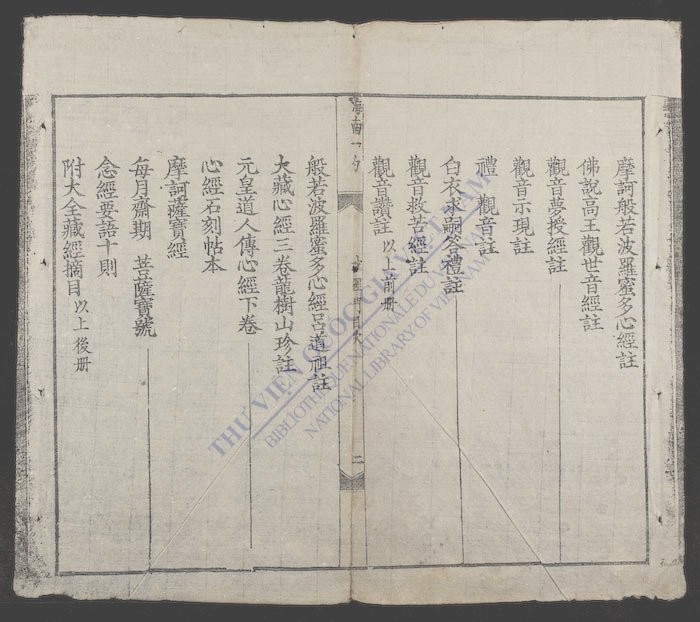 摩訶般若波羅蜜多心經註
佛說高王觀世音經註
觀音夢授經註
觀音示現註
禮 觀音註
白衣求嗣答禮註
觀音救苦經註
觀音讚註 以上前册
海南一勺
目次
二
般若波羅蜜多心經呂道祖註
大藏心經三卷龍樹山珍註
元皇道人傳心經下卷
心經石刻帖本
摩訶薩寶經
每月齋期 菩薩寶號
念經要語十則
附大全藏經摘目 以上後册
THƯ VIỆN QUỐC GIA VIỆT NAM
BIBLIOTHÈQUE NATIONALE DU VIETNAM
NATIONAL LIBRARY OF VIETNAM